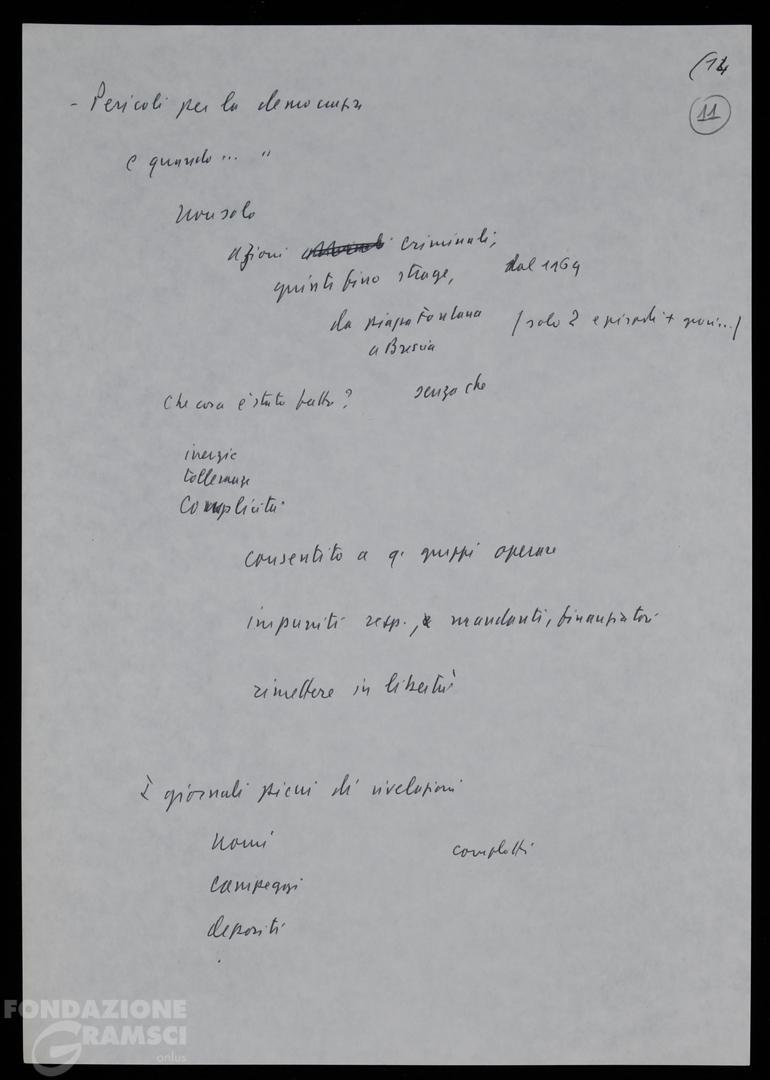 (14
11
- Pericoli per la democrazia
e quando... "
non solo
azioni criminali,
quinti fino strage, dal 1169
da piazza Fontana (solo 2 episodi + gravi...)
a Brescia
Che cosa è stato fatto? senza che
inerzie
tolleranze
Complicità
consentito a q. gruppi operare
impuniti resp., mandanti, finanziatori
rimettere in libertà
I giornali pieni di rivelazioni
nomi complotti
campeggi
depositi
FONDAZIONE
GRAMSCI
onlus